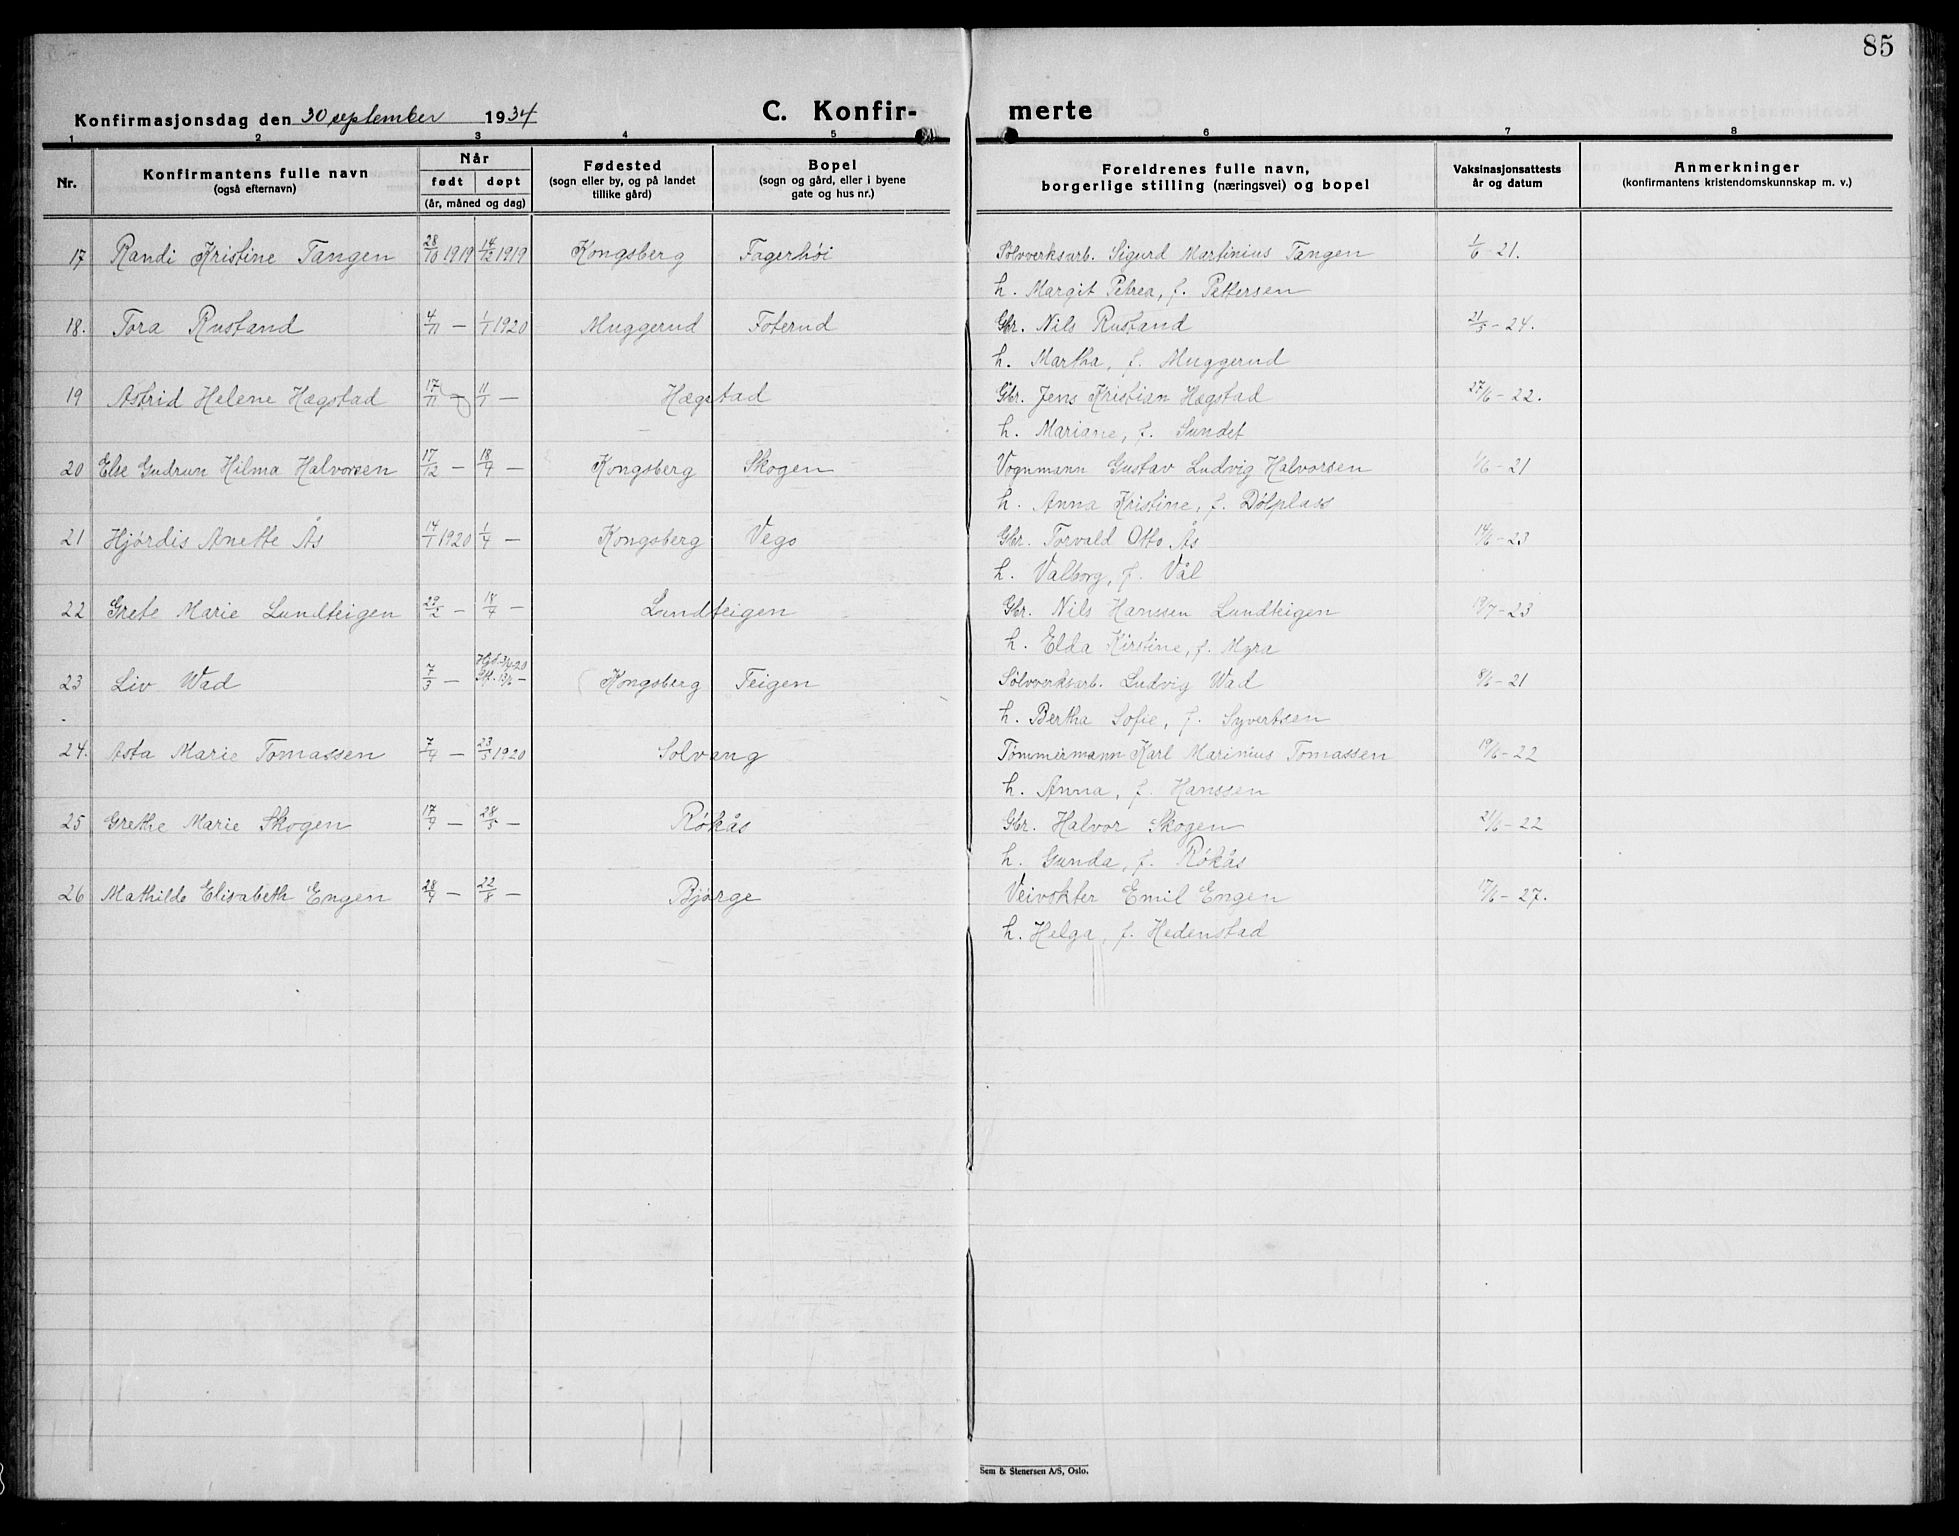 85
Konfirmasjonsdag den 30 september 1934
C. Konfirmerte
1 2 3 4 5 6 7 8
Nr. | Konfirmantens fulle navn (også efternavn) | Når født døpt (år, måned og dag) | Fødested (sogn eller by, og på landet tillike gård) | Bopel (sogn og gård, eller i byene gate og hus nr.) | Foreldrenes fulle navn, borgerlige stilling (næringsvei) og bopel | Vaksinasjonsattests år og datum | Anmerkninger (konfirmantens kristendomskunnskap m. v.)
17 Randi Kristine Tangen 28/10 1919 14/12 1919 Kongsberg Fagerhøi Sølvverksarb. Sigurd Martinius Tangen 1/6-21.
h. Margit Petrea, f. Pettersen
18. Tora Rustand 4/11 — 1/1 1920 Muggerud Foterud Gbr. Nils Rustand 21/5-24.
h. Martha, f. Muggerud
19 Astrid Helene Hægstad 17/11 — 11/1 — Hægstad Gbr. Jens Kristian Hægstad 27/6-22.
h. Mariane, f. Sundet
20 Else Gudrun Hilma Halvorsen 17/12 — 18/4 — Kongsberg Skogen Vognmann Gustav Ludvig Halvorsen 1/6-21
h. Anna Kristine, f. Dølplass
21 Hjørdis Anette Ås 14/1 1920 1/4 — Kongsberg Vego Gbr. Torvald Otto Ås 14/6-23
h. Valborg, f. Vål
22 Grete Marie Lundteigen 29/2 — 18/4 — Lundteigen Gbr. Nils Hanssen Lundteigen /7-23
h. Elda Kirstine, f. Myra
23 Liv Wad 7/3 — Kongsberg Teigen Sølvverksarb. Ludvig Wad 8/6-21
h. Bertha Sofie, f. Syvertsen
24. Asta Marie Tomassen 7/4 — 23/5 1920 Solvang Tømmermann Karl Marinius Tomassen 19/6-22
h. Anna, f. Hanssen
25 Grethe Marie Skogen 17/4 — 28/5 — Røkås Gbr. Halvor Skogen 21/6-22
h. Gunda, f. Røkås
26 Mathilde Elisabeth Engen 28/4 — 22/8 — Bjørge Veivokter Emil Engen 17/6-27.
h. Helga, f. Hedenstad
Sem & Stenersen A/S, Oslo.